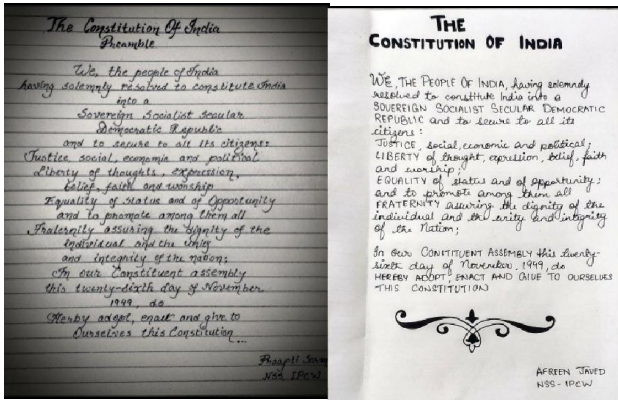 The Constitution Of India
Preamble
We, the people of India
having solemnly resolved to constitute India
into a
Sovereign Socialist Secular
Democratic Republic
and to secure to all its citizens:
Justice social, economic and political
Liberty of thoughts, expression,
belief, faith and worship
Equality of status and of Opportunity
and to promote among them all
Fraternity assuring the dignity of the
individual and the unity
and integrity of the nation;
In our Constituent assembly
this twenty-sixth day of November
1949, do
Herby adopt, enact and give to
Ourselves this Constitution...
NSS IPCW
THE
CONSTITUTION OF INDIA
WE, THE PEOPLE OF INDIA, having solemnly
resolved to constitute India into a
SOVEREIGN SOCIALIST SECULAR DEMOCRATIC
REPUBLIC and to secure to all its
citizens:
JUSTICE, social, economic and political;
LIBERTY of thought, expression, belief, faith
and worship;
EQUALITY of status and of opportunity;
and to promote among them all
FRATERNITY assuring the dignity of the
individual and the unity and integrity
of the Nation;
In our CONSTITUENT ASSEMBLY this twenty-
sixth day of November, 1949, do
HEREBY ADOPT, ENACT AND GIVE TO OURSELVES
THIS CONSTITUTION
AFREEN JAVED
NSS-IPCW